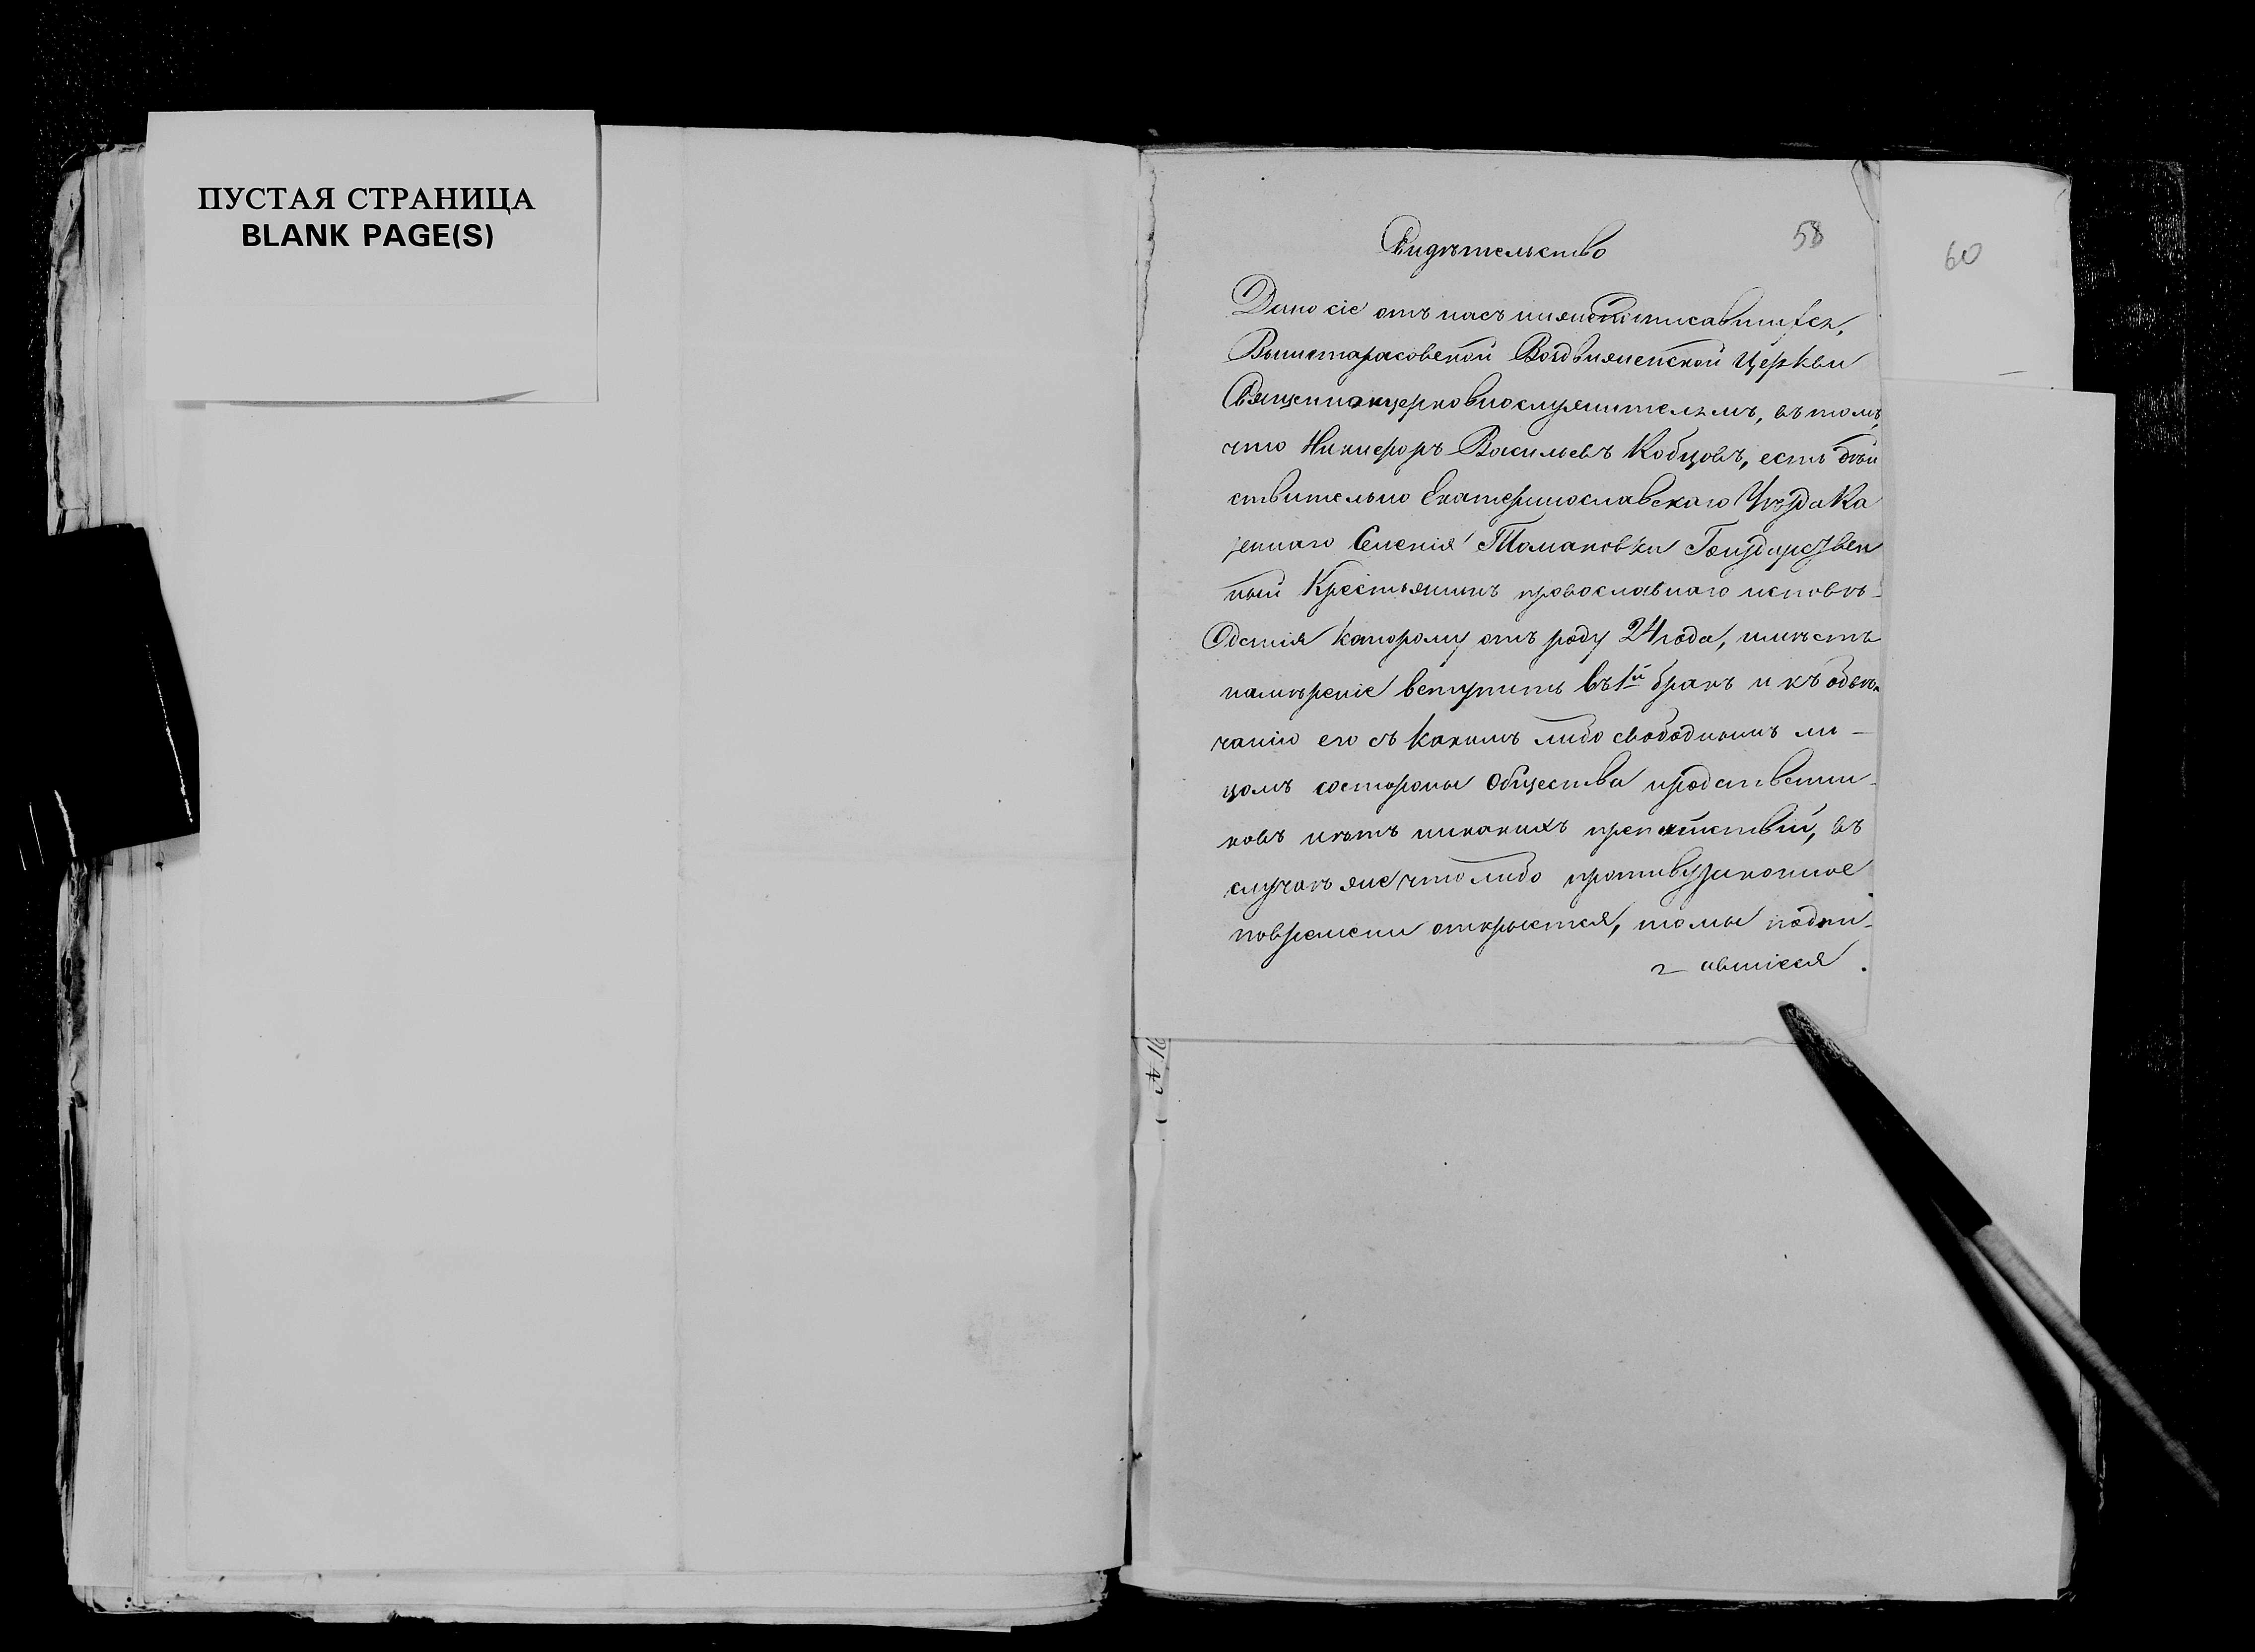 ПУСТАЯ СТРАНИЦА
BLANK PAGE(S)
58
60
Свидѣтельство
Дано сіе отъ насъ нижеподписавшихся,
Вышетарасовской Воздвиженской Церкви
Священноцерковнослужителямъ, въ томъ,
что Никифоръ Васильевъ Кобцовъ, есть дѣй
ствительно Екатеринославскаго Уѣзда Ка
зеннаго Селенія Томаковки Государствен
ный Крестьянинъ провославнаго исповѣ-
данія которому отъ роду 24 года, имѣетъ
намѣреніе вступить въ 1й бракъ и къ обвѣн
чанію его съ какимъ либо свободнымъ ли-
цомъ состороны Общества иродственни-
ковъ нѣтъ никакихъ препятствій, въ
случаѣ же что либо противузаконное
повремени откроется, то мы подпи-
савшіеся